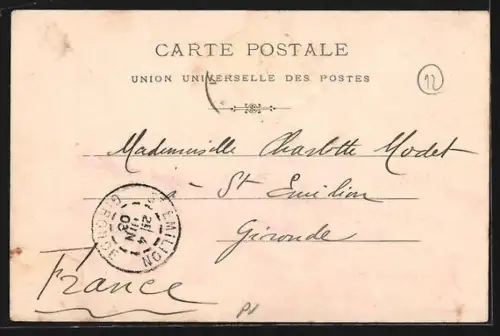 CARTE POSTALE
UNION UNIVERSELLE DES POSTES
12
Mademoiselle Charlotte Modet
à St Emilion
Gironde
ST EMILION
GIRONDE
4
JUIN
03
France